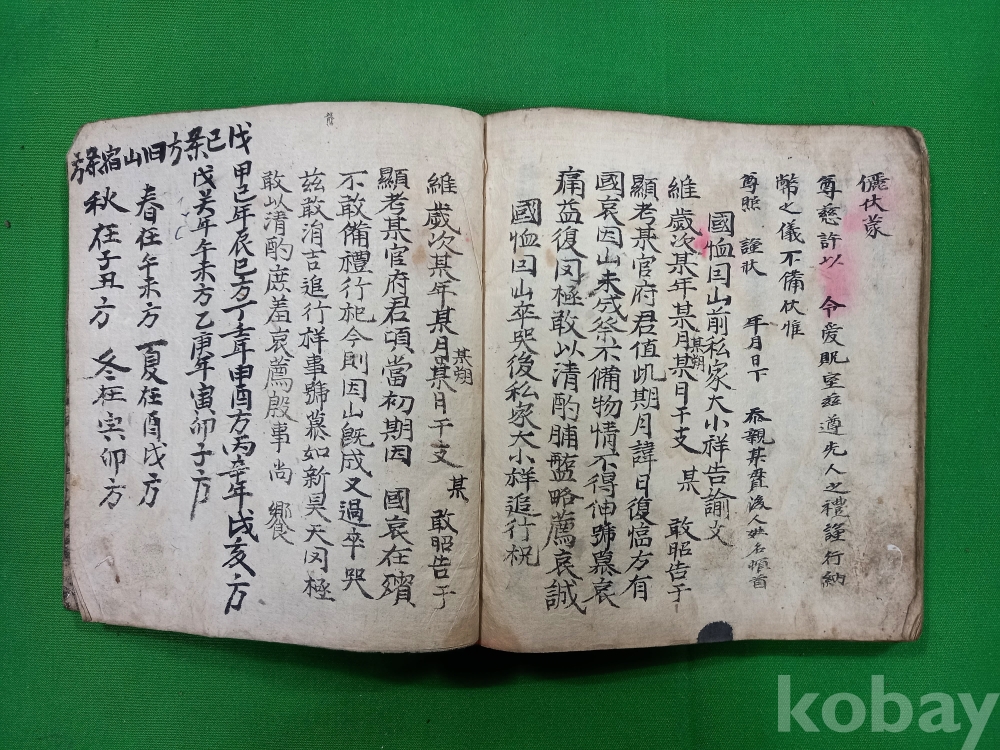 儷伏蒙
尊慈許以 令愛貺室玆遵先人之禮謹行納
幣之儀不備伏惟
尊照 謹狀 年月日下 忝親某貫後人姓名頓首
國恤因山前私家大小祥告諭文
維 歲次某年某月某朔某日干支 某 敢昭告于
顯考某官府君值此期月諱日復臨方有
國哀因山未成祭不備物情不得伸號慕哀
痛益復罔極敢以清酌脯醢略薦哀誠
國恤因山卒哭後私家大小祥追行祝
維 歲次某年某月某朔某日干支 某 敢昭告于
顯考某官府君頃當初期因 國哀在殯
不敢備禮行祀今則因山旣成又過卒哭
玆敢涓吉追行祥事號慕如新昊天罔極
敢以清酌庶羞哀薦殷事尚 饗
戊己煞方旧山宿煞方
甲己年辰巳方丁壬年申酉方丙辛年戌亥方
戊癸年午未方乙庚年寅卯子方
春在午未方 夏在酉戌方
秋在子丑方 冬在寅卯方
kobay